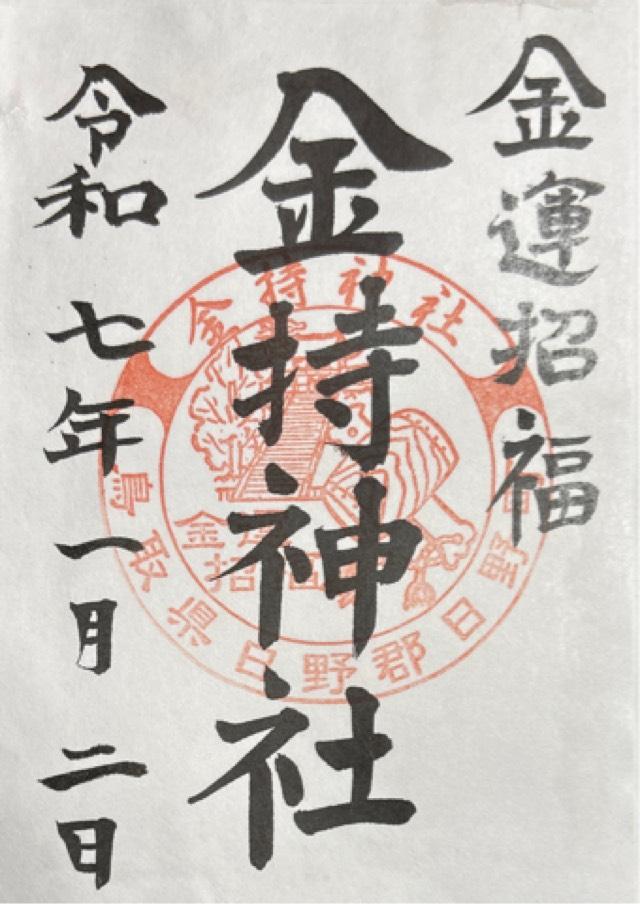 金運招福
金持神社
令和七年一月二日
金持神社
鳥取県日野郡日野
金運
招福